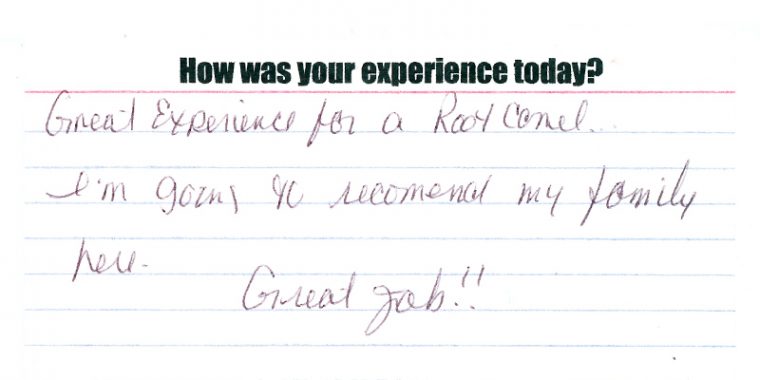 How was your experience today?
Great Experience for a Root Canel.
I'm going to recomend my family
here.
Great job!!